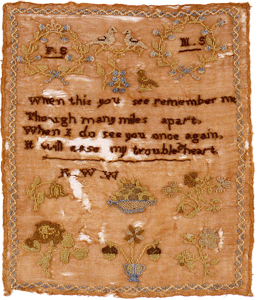 F S
N S
When this you see remember me
Though many miles apart.
When I do see you once again,
It will ease my troubled heart.
R W W